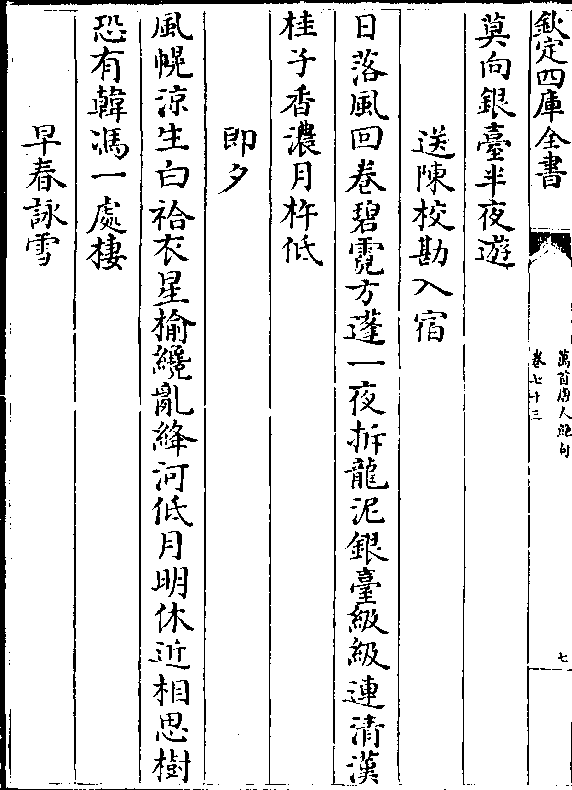 欽定四庫全書
萬首唐人絶句
卷七十三
七
莫向銀臺半夜遊
送陳校勘入宿
日落風回卷碧霓方蓬一夜拆龍泥銀臺級級連清漢
桂子香濃月杵低
即夕
風幌涼生白袷衣星榆纔亂絳河低月明休近相思樹
恐有韓馮一處棲
早春詠雪